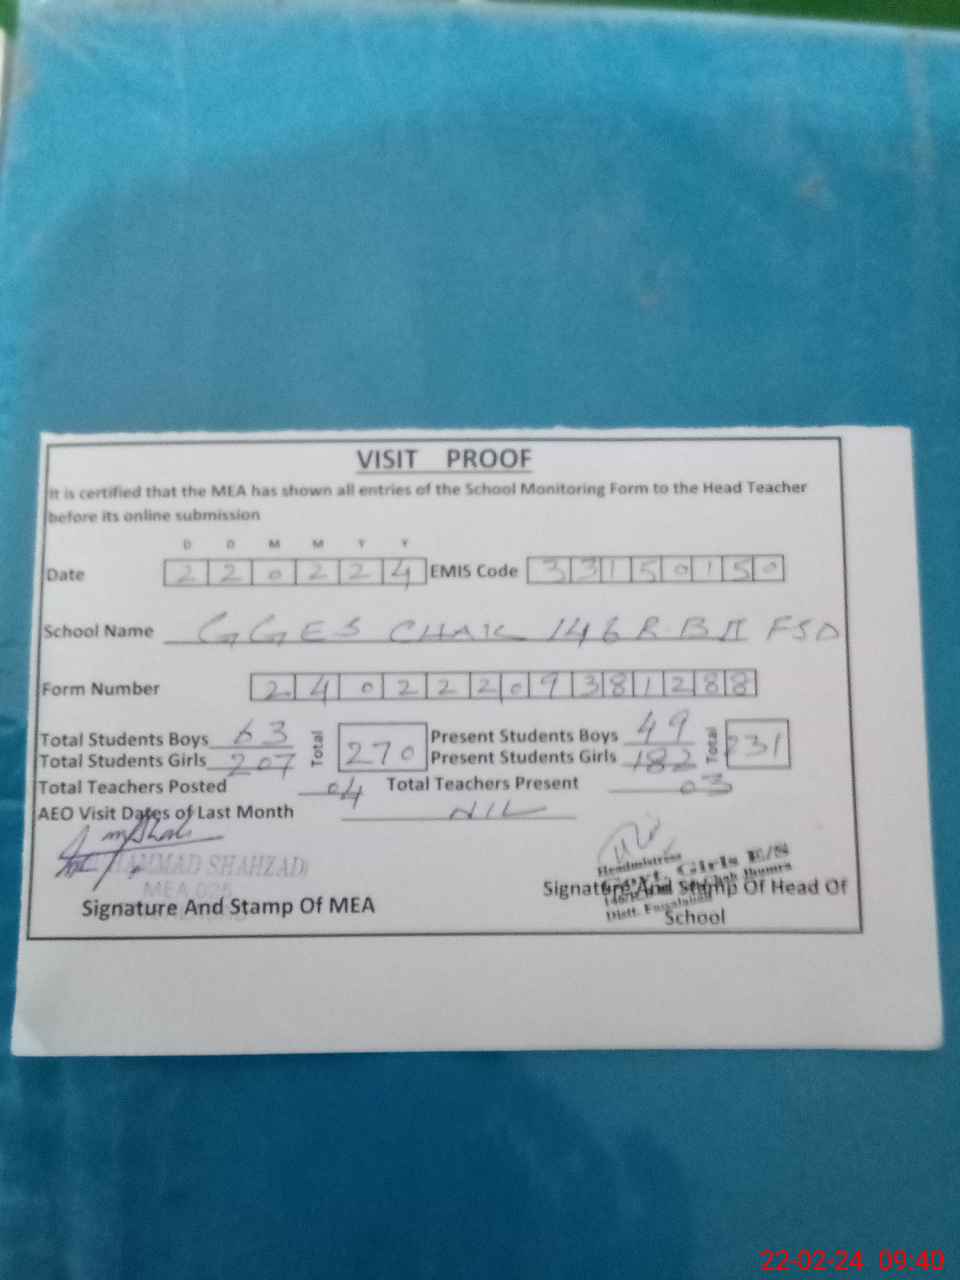 VISIT PROOF
It is certified that the MEA has shown all entries of the School Monitoring Form to the Head Teacher
before its online submission
D D M M Y Y
Date 2 2 0 2 2 4 EMIS Code 3 3 1 5 0 1 5 0
School Name GGES CHAK 146 R.B II FSD
Form Number 2 4 0 2 2 2 0 9 3 8 1 2 8 8
Total Students Boys 63 Total 270 Present Students Boys 49 Total 231
Total Students Girls 207 Present Students Girls 182
Total Teachers Posted 04 Total Teachers Present 03
AEO Visit Dates of Last Month NIL
SHAHZAD
MEA
Signature And Stamp Of MEA
Headmistress
Govt. Girls E/S
Jhumra
Distt. Faisalabad
Signature And Stamp Of Head Of
School
22-02-24 09:40